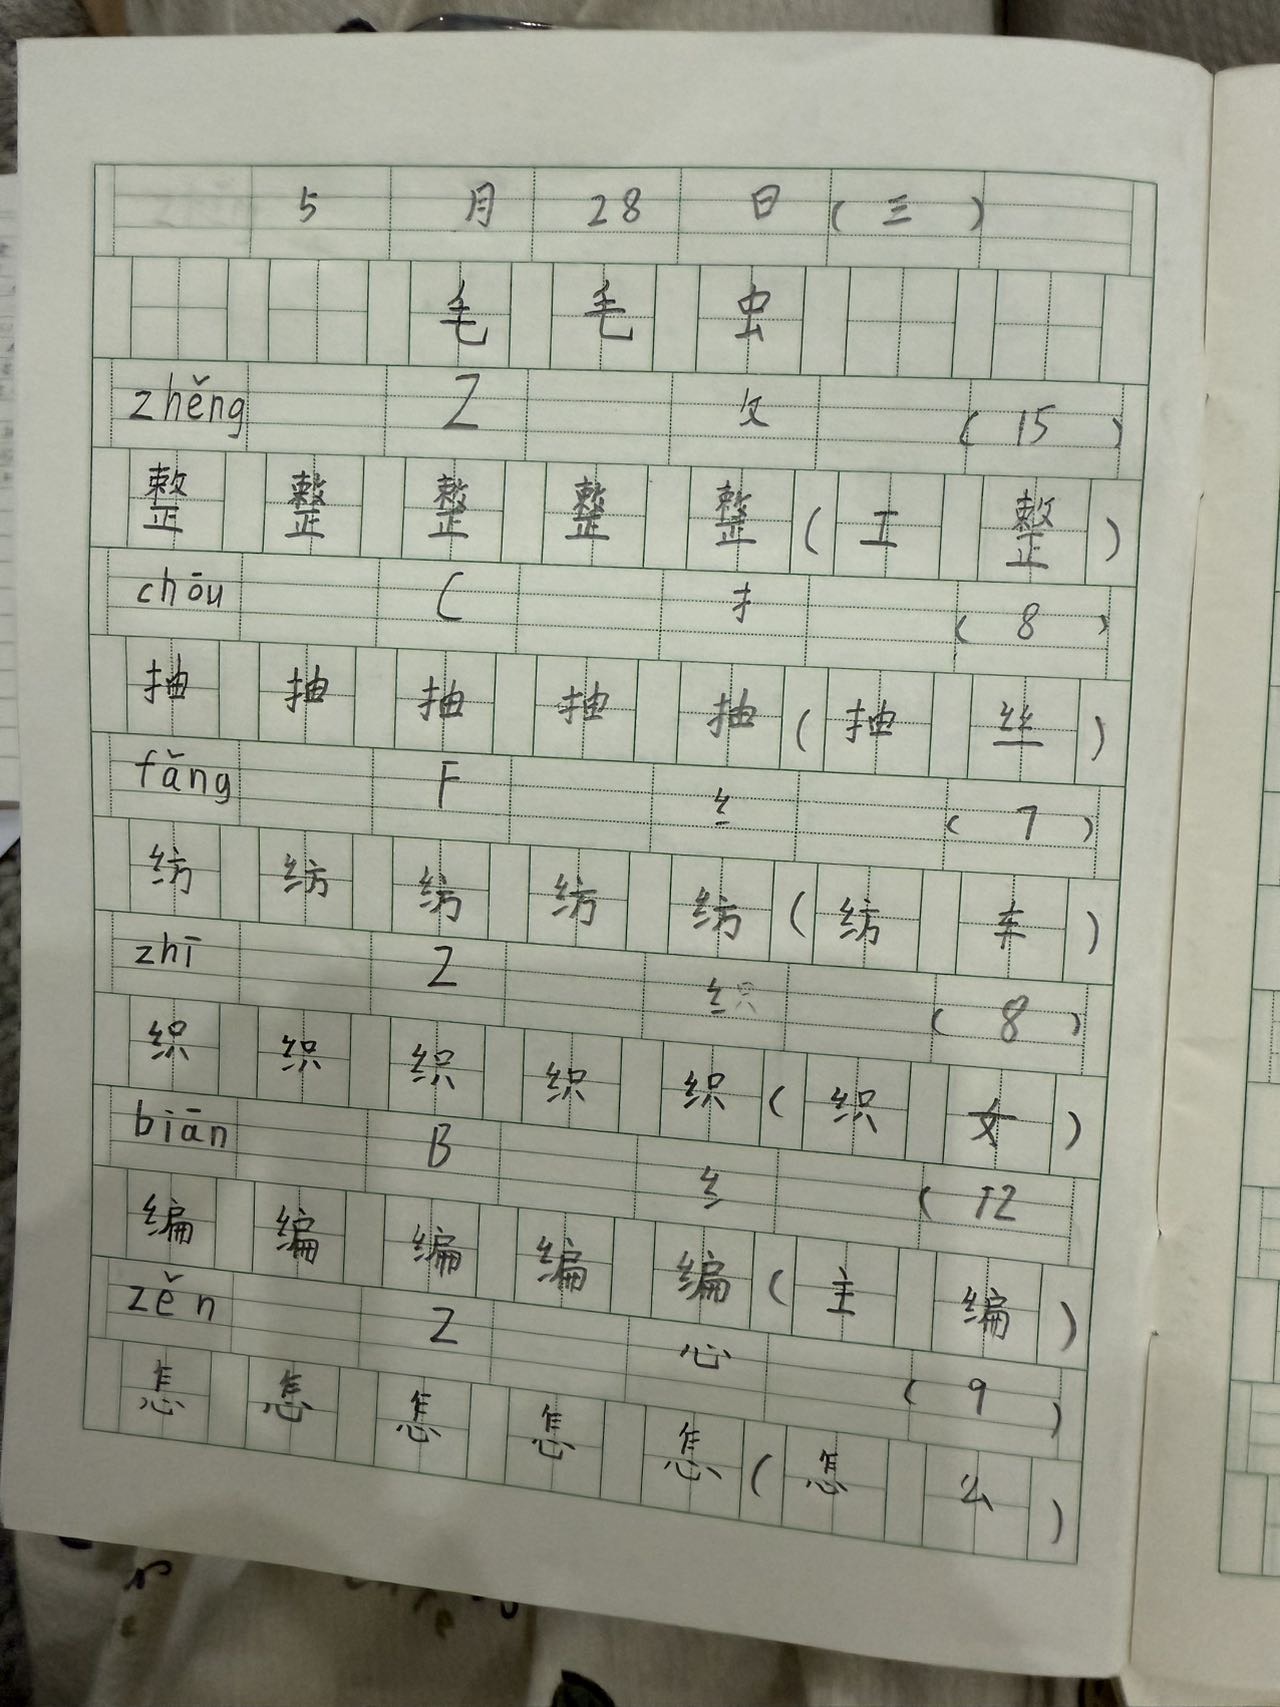 5 月 28 日 (三)
毛 毛 虫
zhěng Z 攵 (15)
整 整 整 整 整 (工 整)
chōu C 扌 (8)
抽 抽 抽 抽 抽 (抽 丝)
fǎng F 纟 (7)
纺 纺 纺 纺 纺 (纺 车)
zhī Z 纟 (8)
织 织 织 织 织 (织 女)
biān B 纟 (12
编 编 编 编 编 (主 编)
zěn Z 心 (9)
怎 怎 怎 怎 怎 (怎 么)